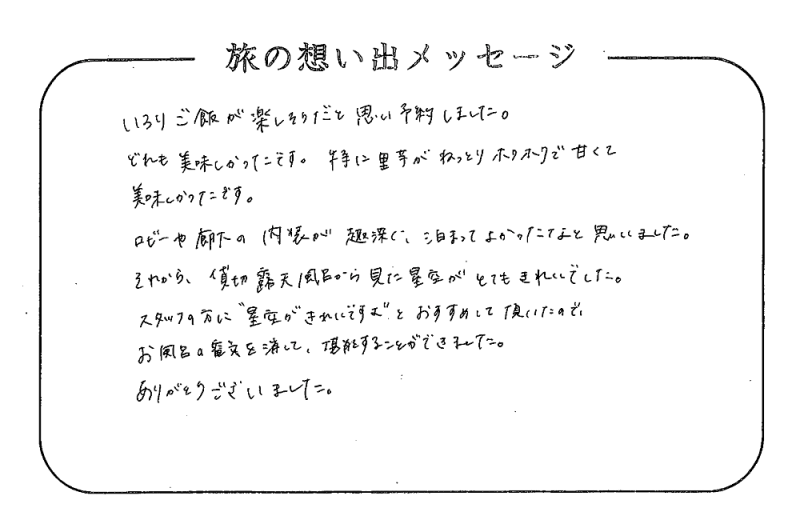 旅の想い出メッセージ
いろりご飯が楽しそうだと思い予約しました。
どれも美味しかったです。特に里芋がねっとりホクホクで甘くて
美味しかったです。
ロビーや廊下の内装が趣深く、泊まってよかったなと思いました。
それから、貸切露天風呂から見た星空がとてもきれいでした。
スタッフの方に"星空がきれいですよ"とおすすめして頂いたので、
お風呂の電気を消して、堪能することができました。
ありがとうございました。